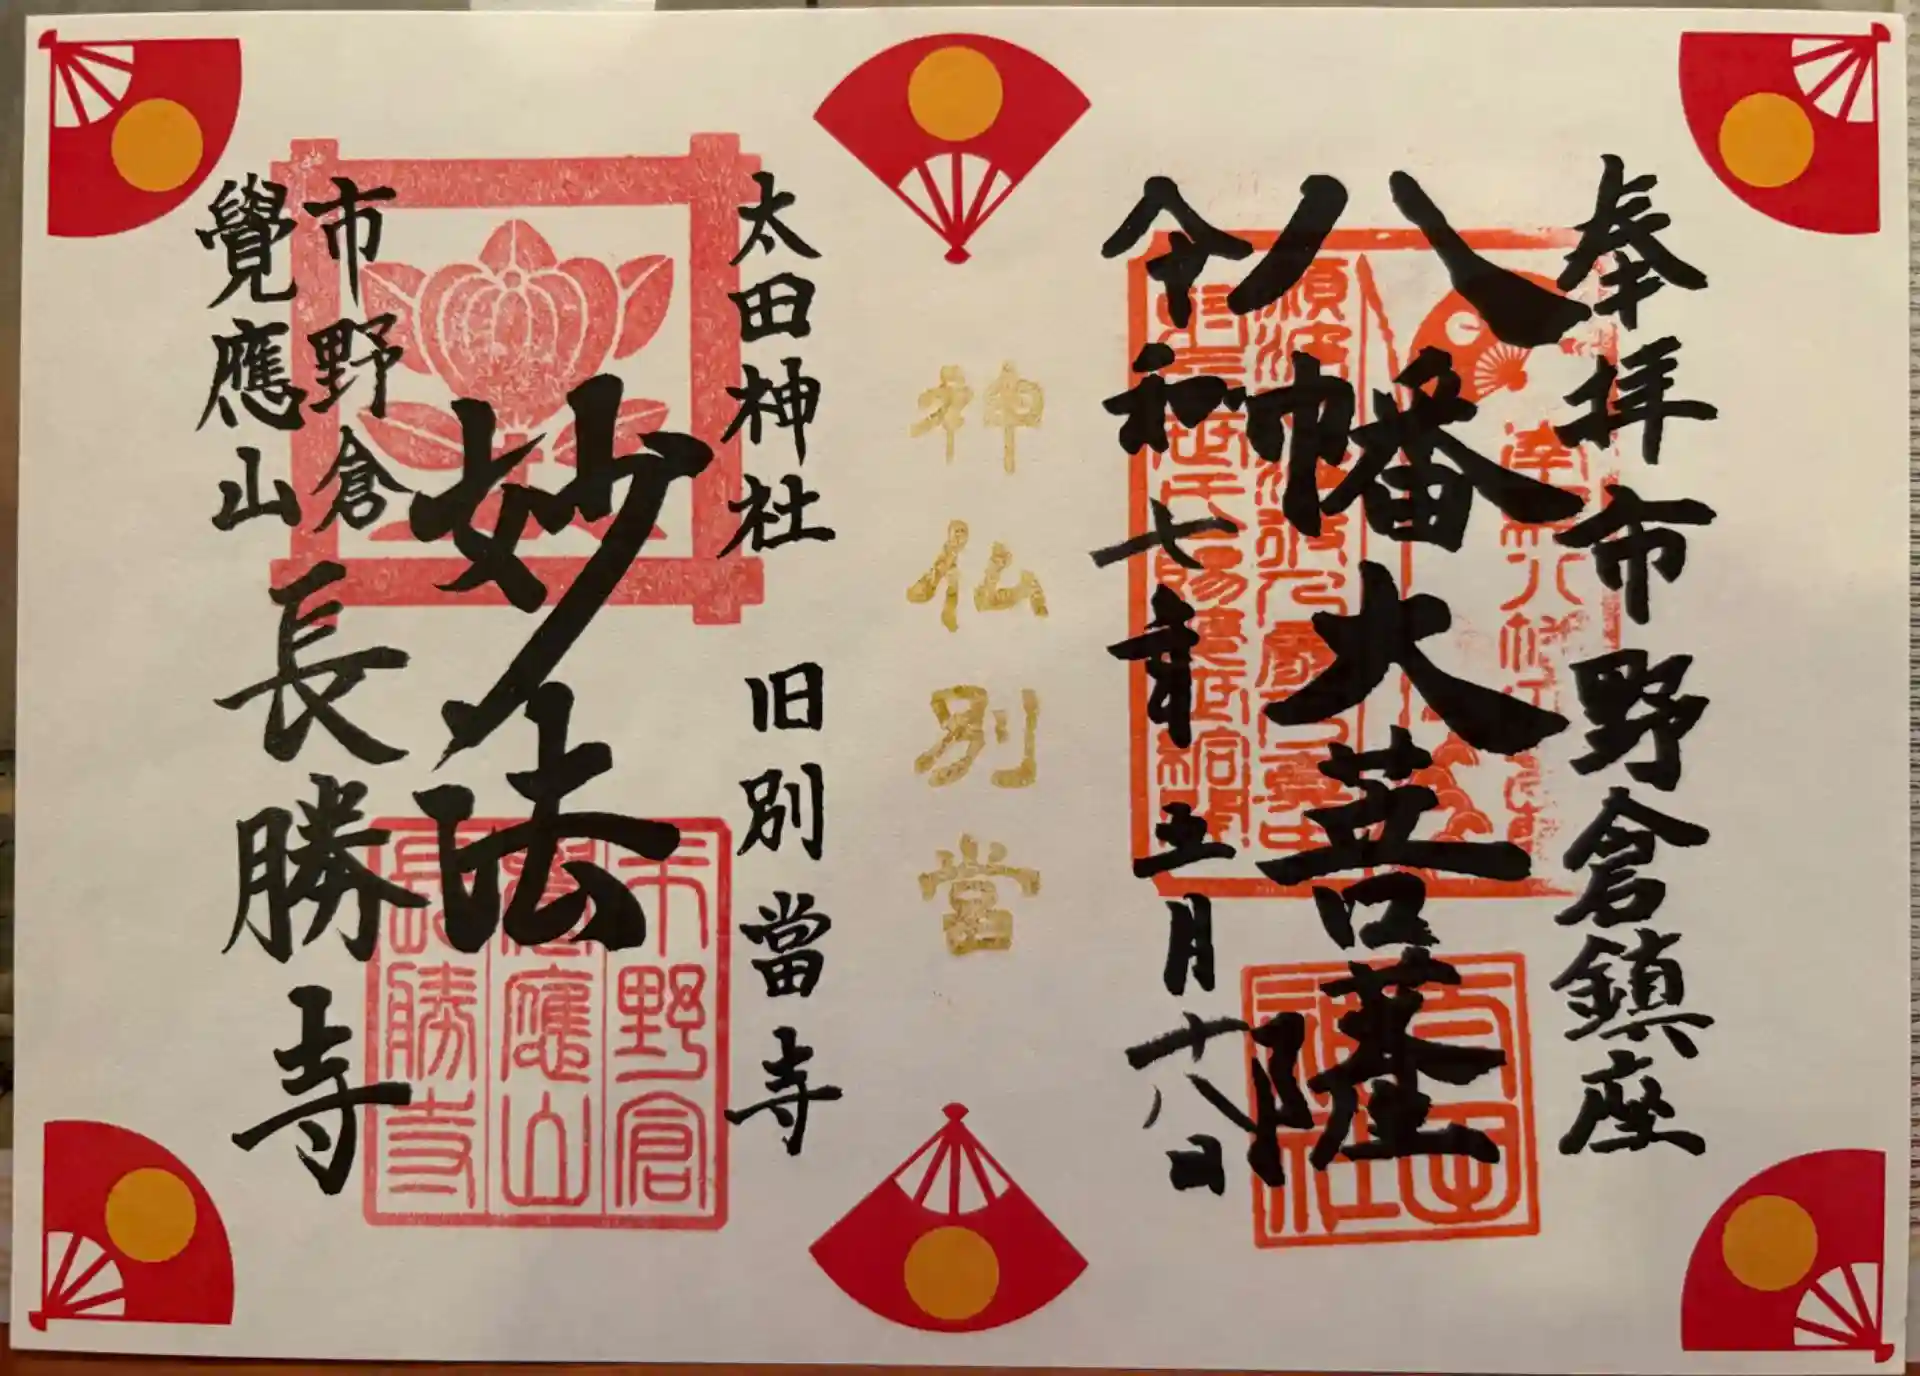 奉拝 市野倉鎮座
八幡大菩薩
令和七年五月十八日
太田
神社
神仏別當
太田神社 旧別當寺
妙法
市野倉
覺應山
長勝寺
市野倉
覺應山
長勝寺